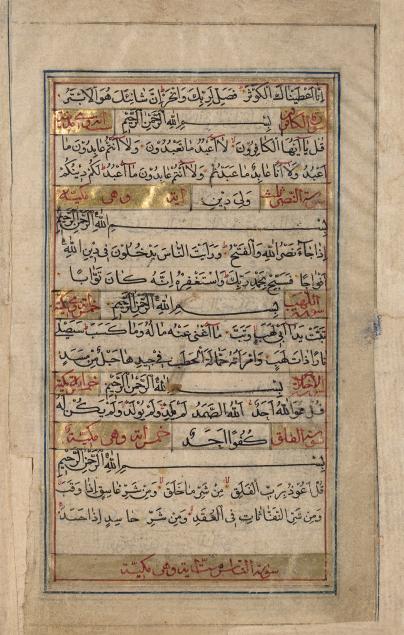 انا اعطيناك الكوثر فصل لربك وانحر ان شانئك هو الابتر
سورة الكافرون بسم الله الرحمن الرحيم
قل يا ايها الكافرون لا اعبد ما تعبدون ولا انتم عابدون ما
اعبد ولا انا عابد ما عبدتم ولا انتم عابدون ما اعبد لكم دينكم
ولي دين اية وهى مكية
بسم الله الرحمن الرحيم
اذا جاء نصر الله والفتح ورايت الناس يدخلون في دين الله
افواجا فسبح بحمد ربك واستغفره انه كان توابا
سورة اللهب بسم الله الرحمن الرحيم
تبت يدا ابي لهب وتب ما اغنى عنه ماله وما كسب سيصلى
نارا ذات لهب وامراته حمالة الحطب في جيدها حبل من مسد
بسم الله الرحمن الرحيم
قل هو الله احد الله الصمد لم يلد ولم يولد ولم يكن له
سورة الفلق كفوا احد خمس اية وهى مكية
بسم الله الرحمن الرحيم
قل اعوذ برب الفلق من شر ما خلق ومن شر غاسق اذا وقب
ومن شر النفاثات في العقد ومن شر حاسد اذا حسد
سورة الناس ست اية وهى مكية